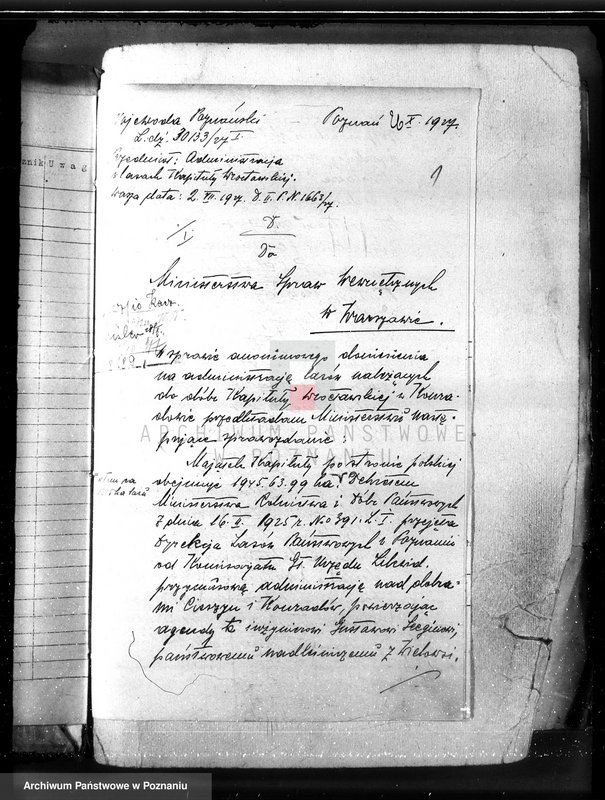 Wojewoda Poznański
Poznań 26 X. 1927.
L.dz. 30133/27 I.
Przedmiot: Administracja
w lasach Kapituły Wrocławskiej.
wasza data: 2. VII. 1927. D. II. P. N. 1663/27.
1
./I.
D.
Do
Ministerstwa Spraw Wewnętrznych
w Warszawie.
W sprawie anonimowego doniesienia
na administrację lasów należących
do dóbr Kapituły Wrocławskiej w Konra-
dowie przedkładam Ministerstwu nastę-
pujące sprawozdanie:
Majątek Kapituły po stronie polskiej
obejmuje 1945.63.99 ha. Dekretem
Ministerstwa Rolnictwa i Dóbr Państwowych
z dnia 16. II. 1925 r. No 391. L. I. przejęła
Dyrekcja Lasów Państwowych w Poznaniu
od Komisarjatu Gł. Urzędu Likwid.
przymusową administrację nad dobra-
mi Cieszyn i Konradów, powierzając
agendy te inżynierowi Gustawowi
państwowemu nadleśniczemu z
nik
Uwag
ARCHIWUM PAŃSTWOWE
W POZNANIU
Archiwum Państwowe w Poznaniu